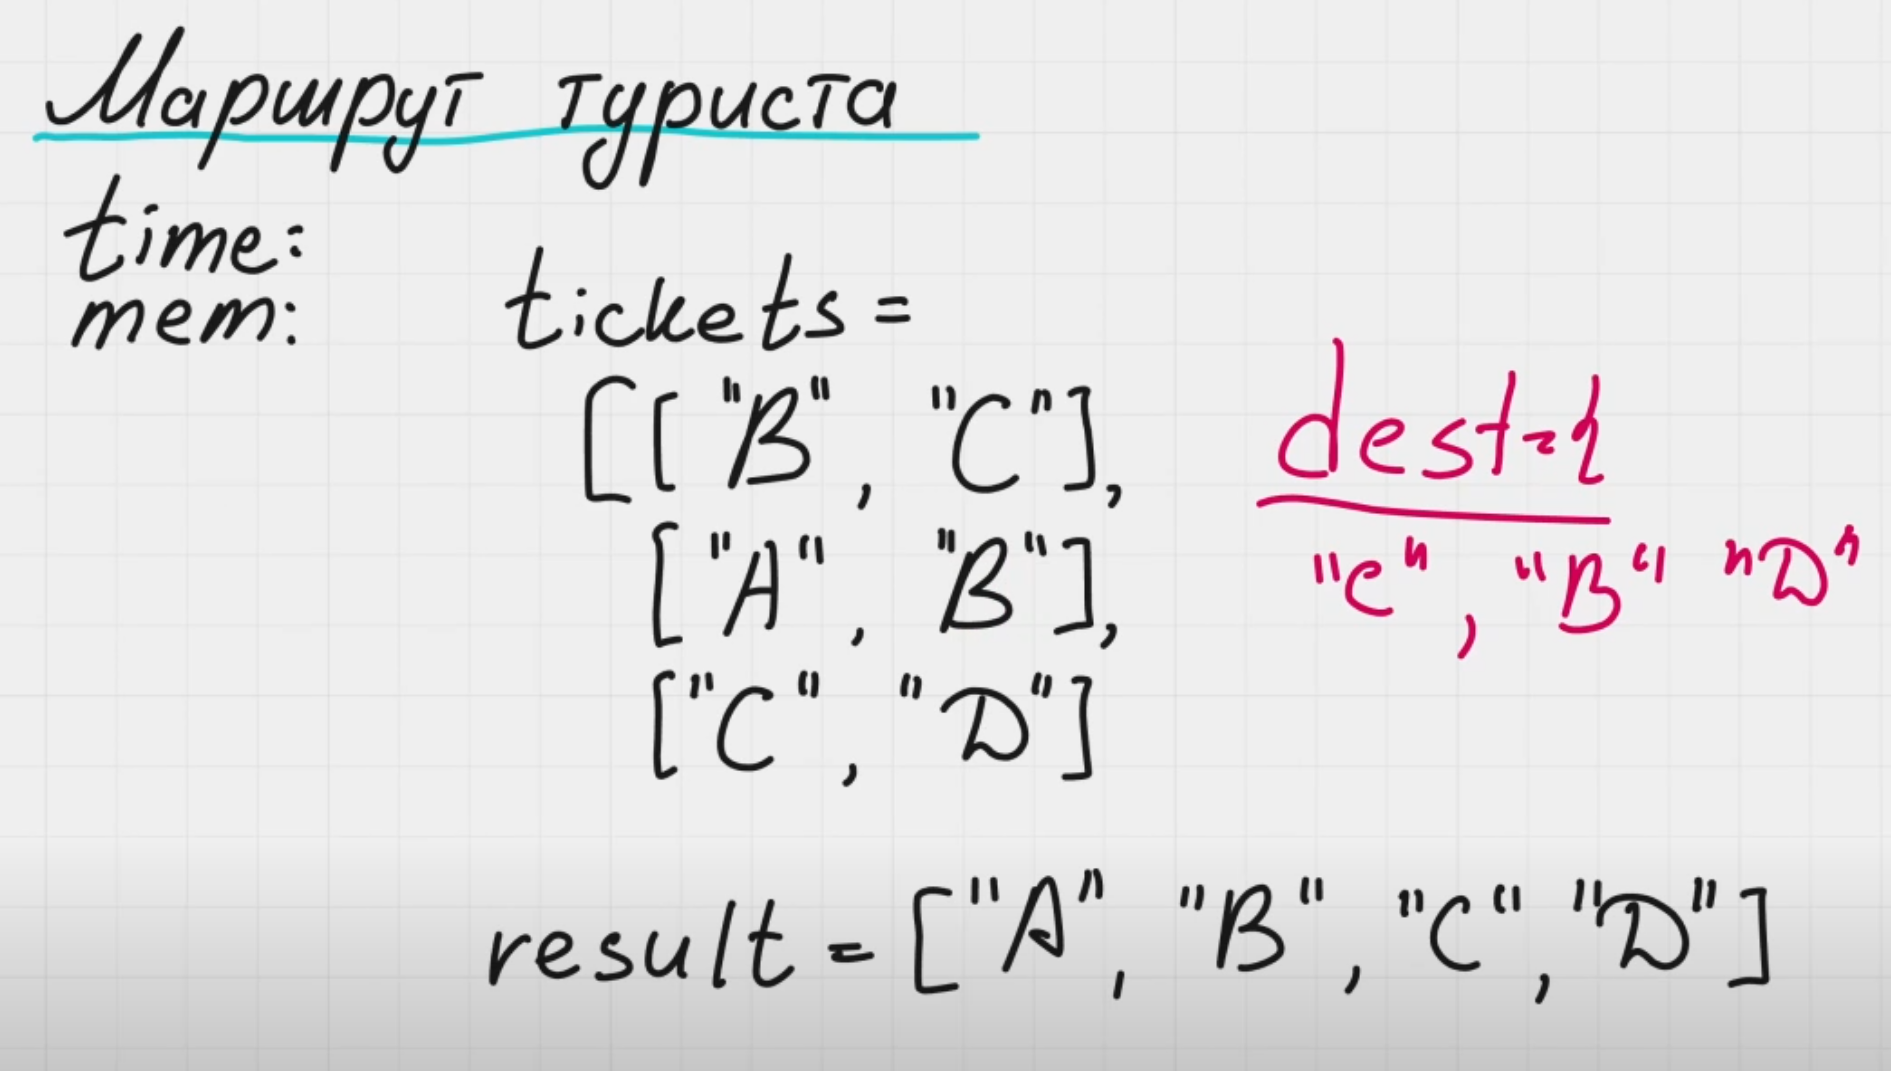 Маршрут туриста
time:
mem:
tickets =
[["B", "C"],
["A", "B"],
["C", "D"]
dest={
"C", "B" "D"
result = ["A", "B", "C", "D"]